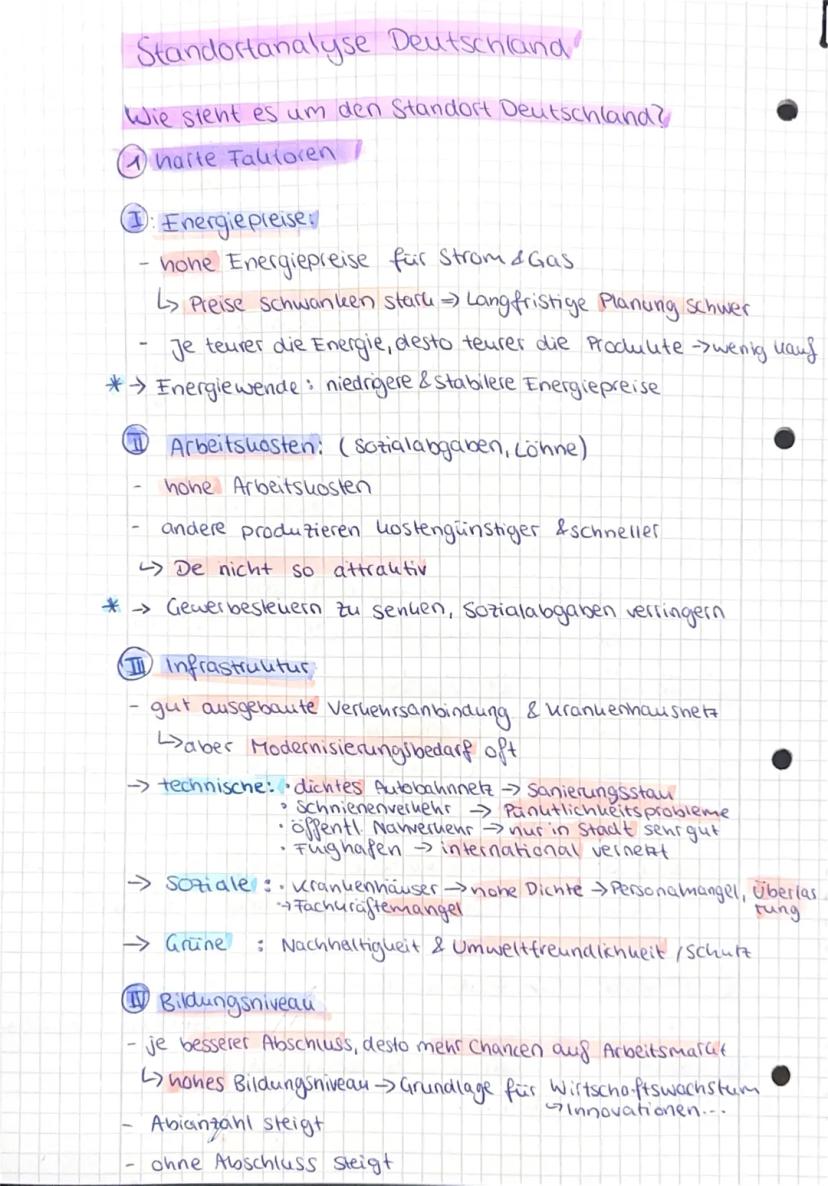 Standortanalyse Deutschland
Wie steht es um den Standort Deutschland?
1 harte Faktoren
I: Energiepreise:
- hohe Energiepreise für Strom & Gas
↳ Preise schwanken stark ⇒ Langfristige Planung schwer
- Je teurer die Energie, desto teurer die Produkte → wenig kauf
* → Energiewende: niedrigere & stabilere Energiepreise
II Arbeitskosten: (Sozialabgaben, Löhne)
- hohe Arbeitskosten
- andere produzieren kostengünstiger & schneller
↳ De nicht so attraktiv
* → Gewerbesteuern zu senken, Sozialabgaben verringern
III Infrastruktur
- gut ausgebaute Verkehrsanbindung & Krankenhausnetz
↳ aber Modernisierungsbedarf oft
→ technische: · dichtes Autobahnnetz → Sanierungsstau
· Schienenverkehr → Pünutlichkeitsprobleme
· öffentl. Nahverkehr → nur in Stadt sehr gut
· Flughafen → international vernetzt
→ Soziale : · Krankenhäuser → hohe Dichte → Personalmangel, Überlas
→ Fachkräftemangel tung
→ Grüne : Nachhaltigkeit & Umweltfreundlichkeit / Schutz
IV Bildungsniveau
- je besserer Abschluss, desto mehr Chancen auf Arbeitsmarkt
↳ hohes Bildungsniveau → Grundlage für Wirtschaftswachstum
↳ Innovationen...
- Abianzahl steigt
- ohne Abschluss steigt